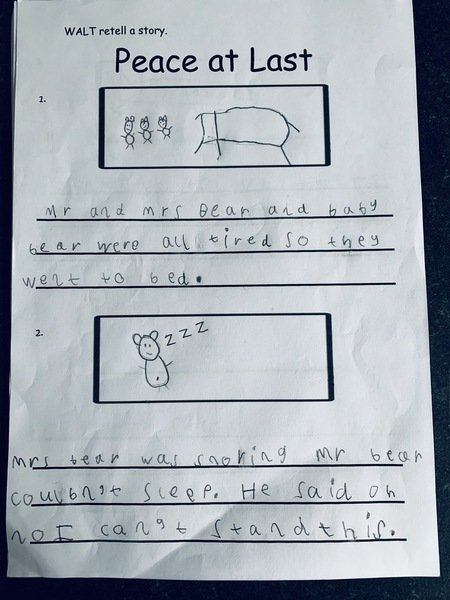 WALT retell a story.
Peace at Last
1.
Mr and mrs Bear and baby
bear were all tired so they
went to bed.
2.
z z z
Mrs bear was snoring Mr bear
coulbn't sleep. He said oh
no I can't stand this.